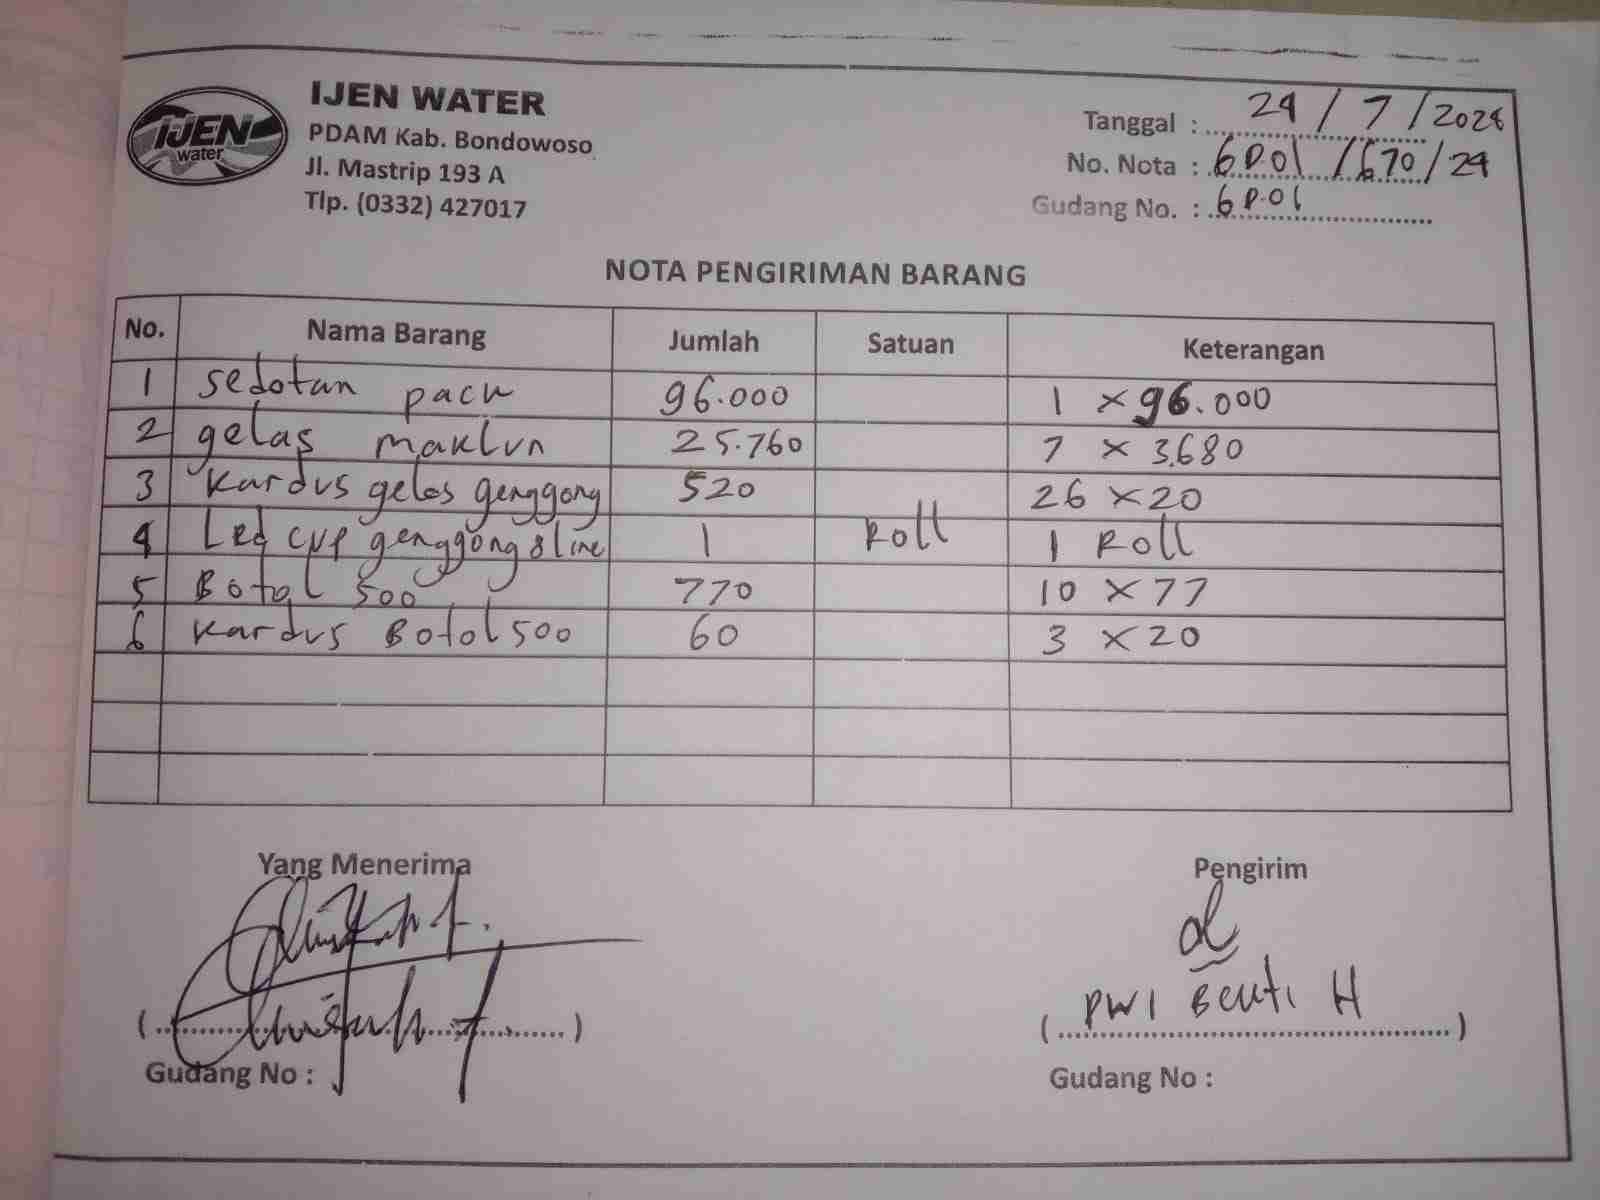 IJEN
water
IJEN WATER
PDAM Kab. Bondowoso
Jl. Mastrip 193 A
Tlp. (0332) 427017
Tanggal : 24 / 7 / 2024
No. Nota : GD.01 / 670 / 24
Gudang No. : GD.01
NOTA PENGIRIMAN BARANG
No. Nama Barang Jumlah Satuan Keterangan
1 sedotan pack 96.000 1 x 96.000
2 gelas maklun 25.760 7 x 3.680
3 kardus gelas genggong 520 26 x 20
4 Led cup genggong 8 line 1 Roll 1 Roll
5 Botol 500 770 10 x 77
6 kardus Botol 500 60 3 x 20
Yang Menerima Pengirim
( ) ( DWI H )
Gudang No : Gudang No :